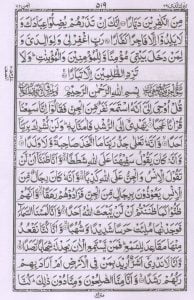 ۵۱۹
مِنَ الْكٰفِرِيْنَ دَيَّارًا اِنَّكَ اِنْ تَذَرْهُمْ يُضِلُّوْا عِبَادَكَ وَ
لَا يَلِدُوْٓا اِلَّا فَاجِرًا كَفَّارًا رَبِّ اغْفِرْلِيْ وَلِوَالِدَيَّ وَ
لِمَنْ دَخَلَ بَيْتِيَ مُؤْمِنًا وَّلِلْمُؤْمِنِيْنَ وَالْمُؤْمِنٰتِ وَلَا
تَزِدِ الظّٰلِمِيْنَ اِلَّا تَبَارًا
بِسْمِ اللّٰهِ الرَّحْمٰنِ الرَّحِيْمِ
قُلْ اُوْحِيَ اِلَيَّ اَنَّهُ اسْتَمَعَ نَفَرٌ مِّنَ الْجِنِّ فَقَالُوْٓا اِنَّا سَمِعْنَا
قُرْاٰنًا عَجَبًا يَّهْدِيْٓ اِلَى الرُّشْدِ فَاٰمَنَّا بِهٖ وَلَنْ نُّشْرِكَ
بِرَبِّنَآ اَحَدًا وَّاَنَّهٗ تَعٰلٰى جَدُّ رَبِّنَا مَا اتَّخَذَ صَاحِبَةً وَّلَا وَلَدًا
وَّاَنَّهٗ كَانَ يَقُوْلُ سَفِيْهُنَا عَلَى اللّٰهِ شَطَطًا وَّاَنَّا ظَنَنَّآ اَنْ لَّنْ
تَقُوْلَ الْاِنْسُ وَالْجِنُّ عَلَى اللّٰهِ كَذِبًا وَّاَنَّهٗ كَانَ رِجَالٌ مِّنَ
الْاِنْسِ يَعُوْذُوْنَ بِرِجَالٍ مِّنَ الْجِنِّ فَزَادُوْهُمْ رَهَقًا وَّاَنَّهُمْ
ظَنُّوْا كَمَا ظَنَنْتُمْ اَنْ لَّنْ يَّبْعَثَ اللّٰهُ اَحَدًا وَّاَنَّا لَمَسْنَا السَّمَآءَ
فَوَجَدْنٰهَا مُلِئَتْ حَرَسًا شَدِيْدًا وَّشُهُبًا وَّاَنَّا كُنَّا نَقْعُدُ
مِنْهَا مَقَاعِدَ لِلسَّمْعِ فَمَنْ يَّسْتَمِعِ الْاٰنَ يَجِدْ لَهٗ شِهَابًا رَّصَدًا
وَّاَنَّا لَا نَدْرِيْٓ اَشَرٌّ اُرِيْدَ بِمَنْ فِي الْاَرْضِ اَمْ اَرَادَ بِهِمْ
رَبُّهُمْ رَشَدًا وَّاَنَّا مِنَّا الصّٰلِحُوْنَ وَمِنَّا دُوْنَ ذٰلِكَ كُنَّا